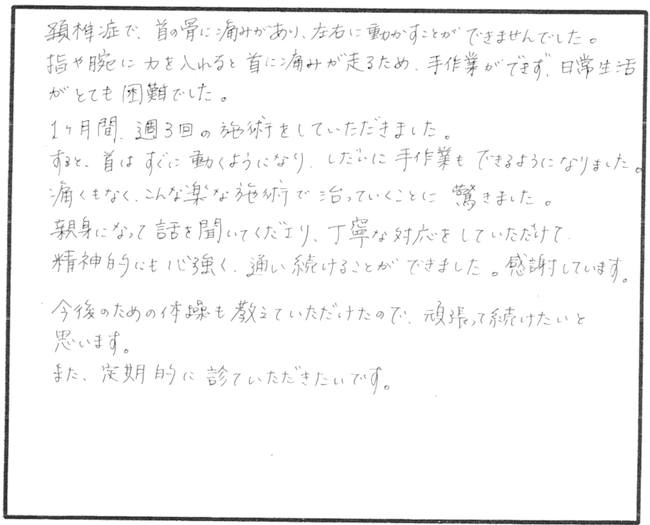 頚椎症で、首の骨に痛みがあり、左右に動かすことができませんでした。
指や腕に力を入れると首に痛みが走るため、手作業ができず、日常生活
がとても困難でした。
1ヶ月間、週3回の施術をしていただきました。
すると、首はすぐに動くようになり、しだいに手作業もできるようになりました。
痛くもなく、こんな楽な施術で治っていくことに驚きました。
親身になって話を聞いてくださり、丁寧な対応をしていただけて
精神的にも心強く、通い続けることができました。感謝しています。
今後のための体操も教えていただけたので、頑張って続けたいと
思います。
また、定期的に診ていただきたいです。